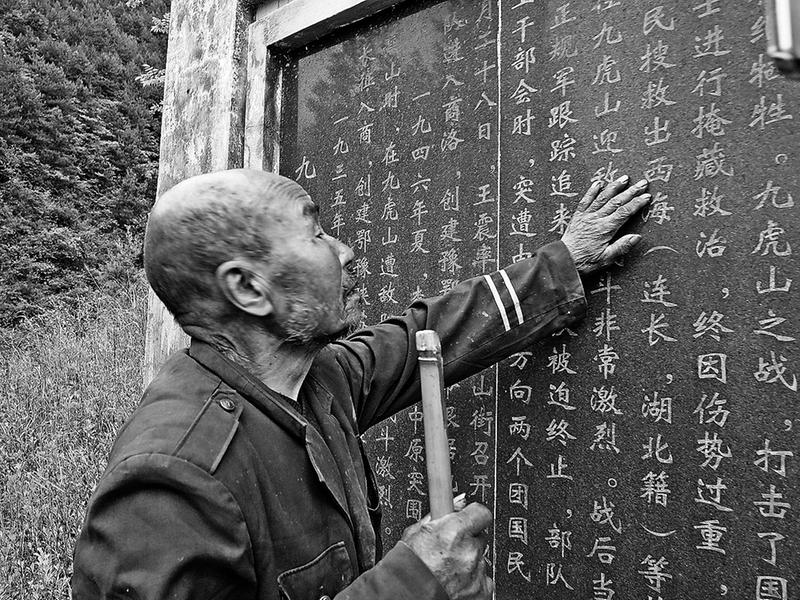 九
一九三五年
长征入商，创建鄂豫陕
山时，在九虎山遭敌 斗激烈
一九四六年夏， 中原突围
队进入商洛，创建豫鄂
月二十八日，王震率 山街召开
干部会时，突遭由 方向两个团国民
正规军跟踪追来 被迫终止，部队
在九虎山迎敌 斗非常激烈。战后当
民搜救出西海（连长，湖北籍）等
士进行掩藏救治，终因伤势过重，
牺牲。九虎山之战，打击了国